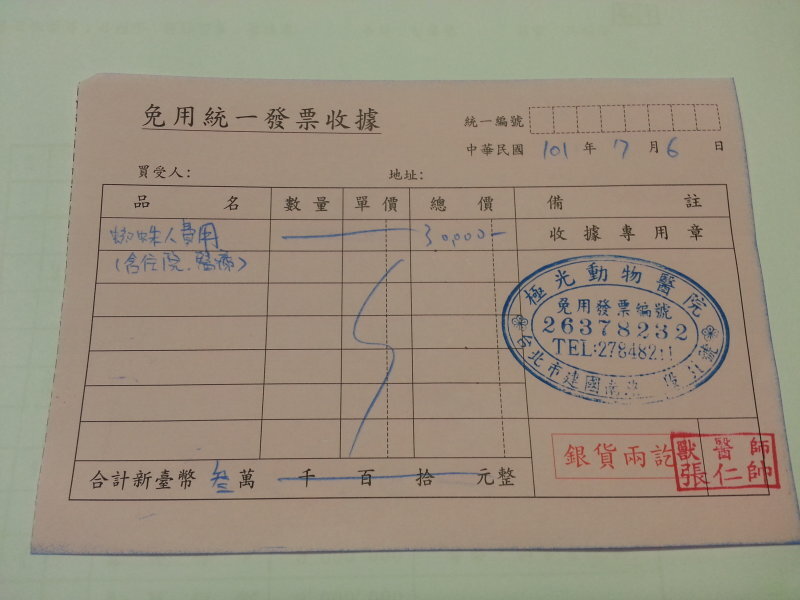 免用統一發票收據
統一編號
中華民國 101 年 7 月 6 日
買受人： 地址：
品名 數量 單價 總價 備註
蜘蛛人費用 30,000- 收據專用章
(含住院、醫療)
極光動物醫院
免用發票編號
26378232
TEL:27848211
台北市建國南 段 號
銀貨兩訖
獸醫師
張仁帥
合計新臺幣 叁 萬 千 百 拾 元整